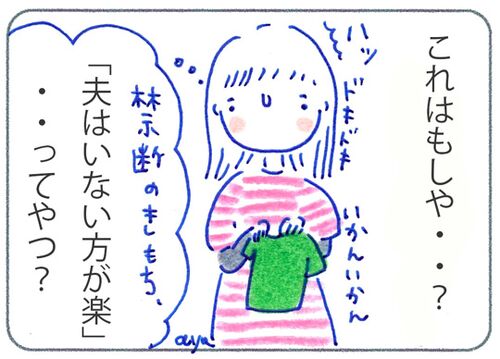 これはもしや・・?
ハッ
ドキドキ
いかんいかん
禁断のきもち、
「夫はいない方が楽」
・・ってやつ?
aya